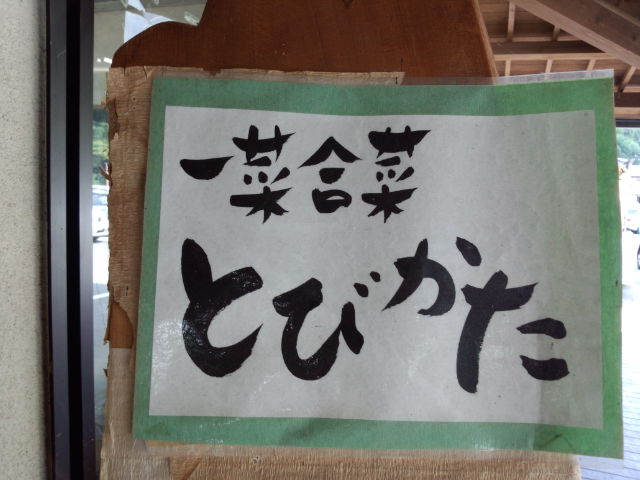 一菜合菜
とびかた